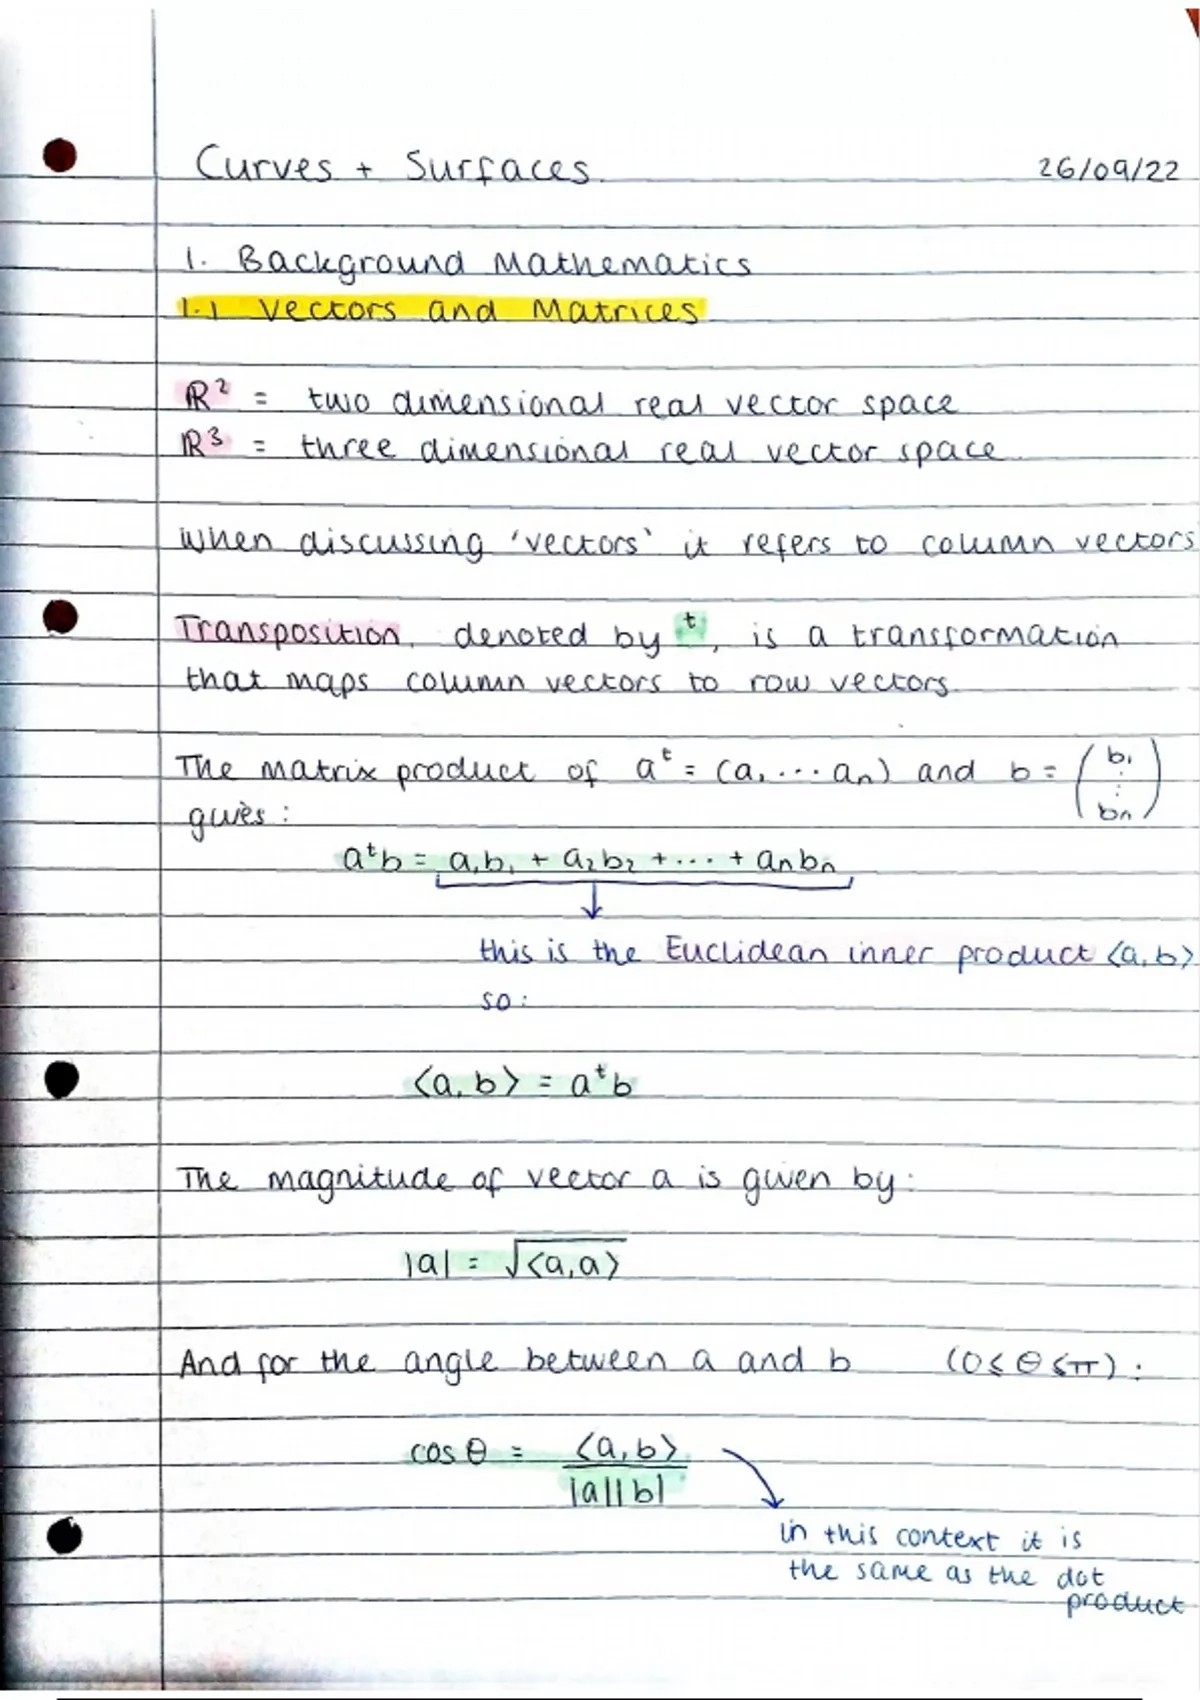 Curves + Surfaces. 26/09/22
1. Background Mathematics
1.1 Vectors and Matrices
ℝ² = two dimensional real vector space
ℝ³ = three dimensional real vector space.
When discussing 'vectors' it refers to column vectors
Transposition, denoted by ᵗ, is a transformation
that maps column vectors to row vectors.
The matrix product of aᵗ = (a₁ ... aₙ) and b = (b₁ ⋮ bₙ)
gives:
aᵗb = a₁b₁ + a₂b₂ + ... + aₙbₙ
this is the Euclidean inner product ⟨a,b⟩
so:
⟨a,b⟩ = aᵗb
The magnitude of vector a is given by:
|a| = √⟨a,a⟩
And for the angle between a and b (0≤θ≤π):
cos θ = ⟨a,b⟩
|a||b|
in this context it is
the same as the dot
product